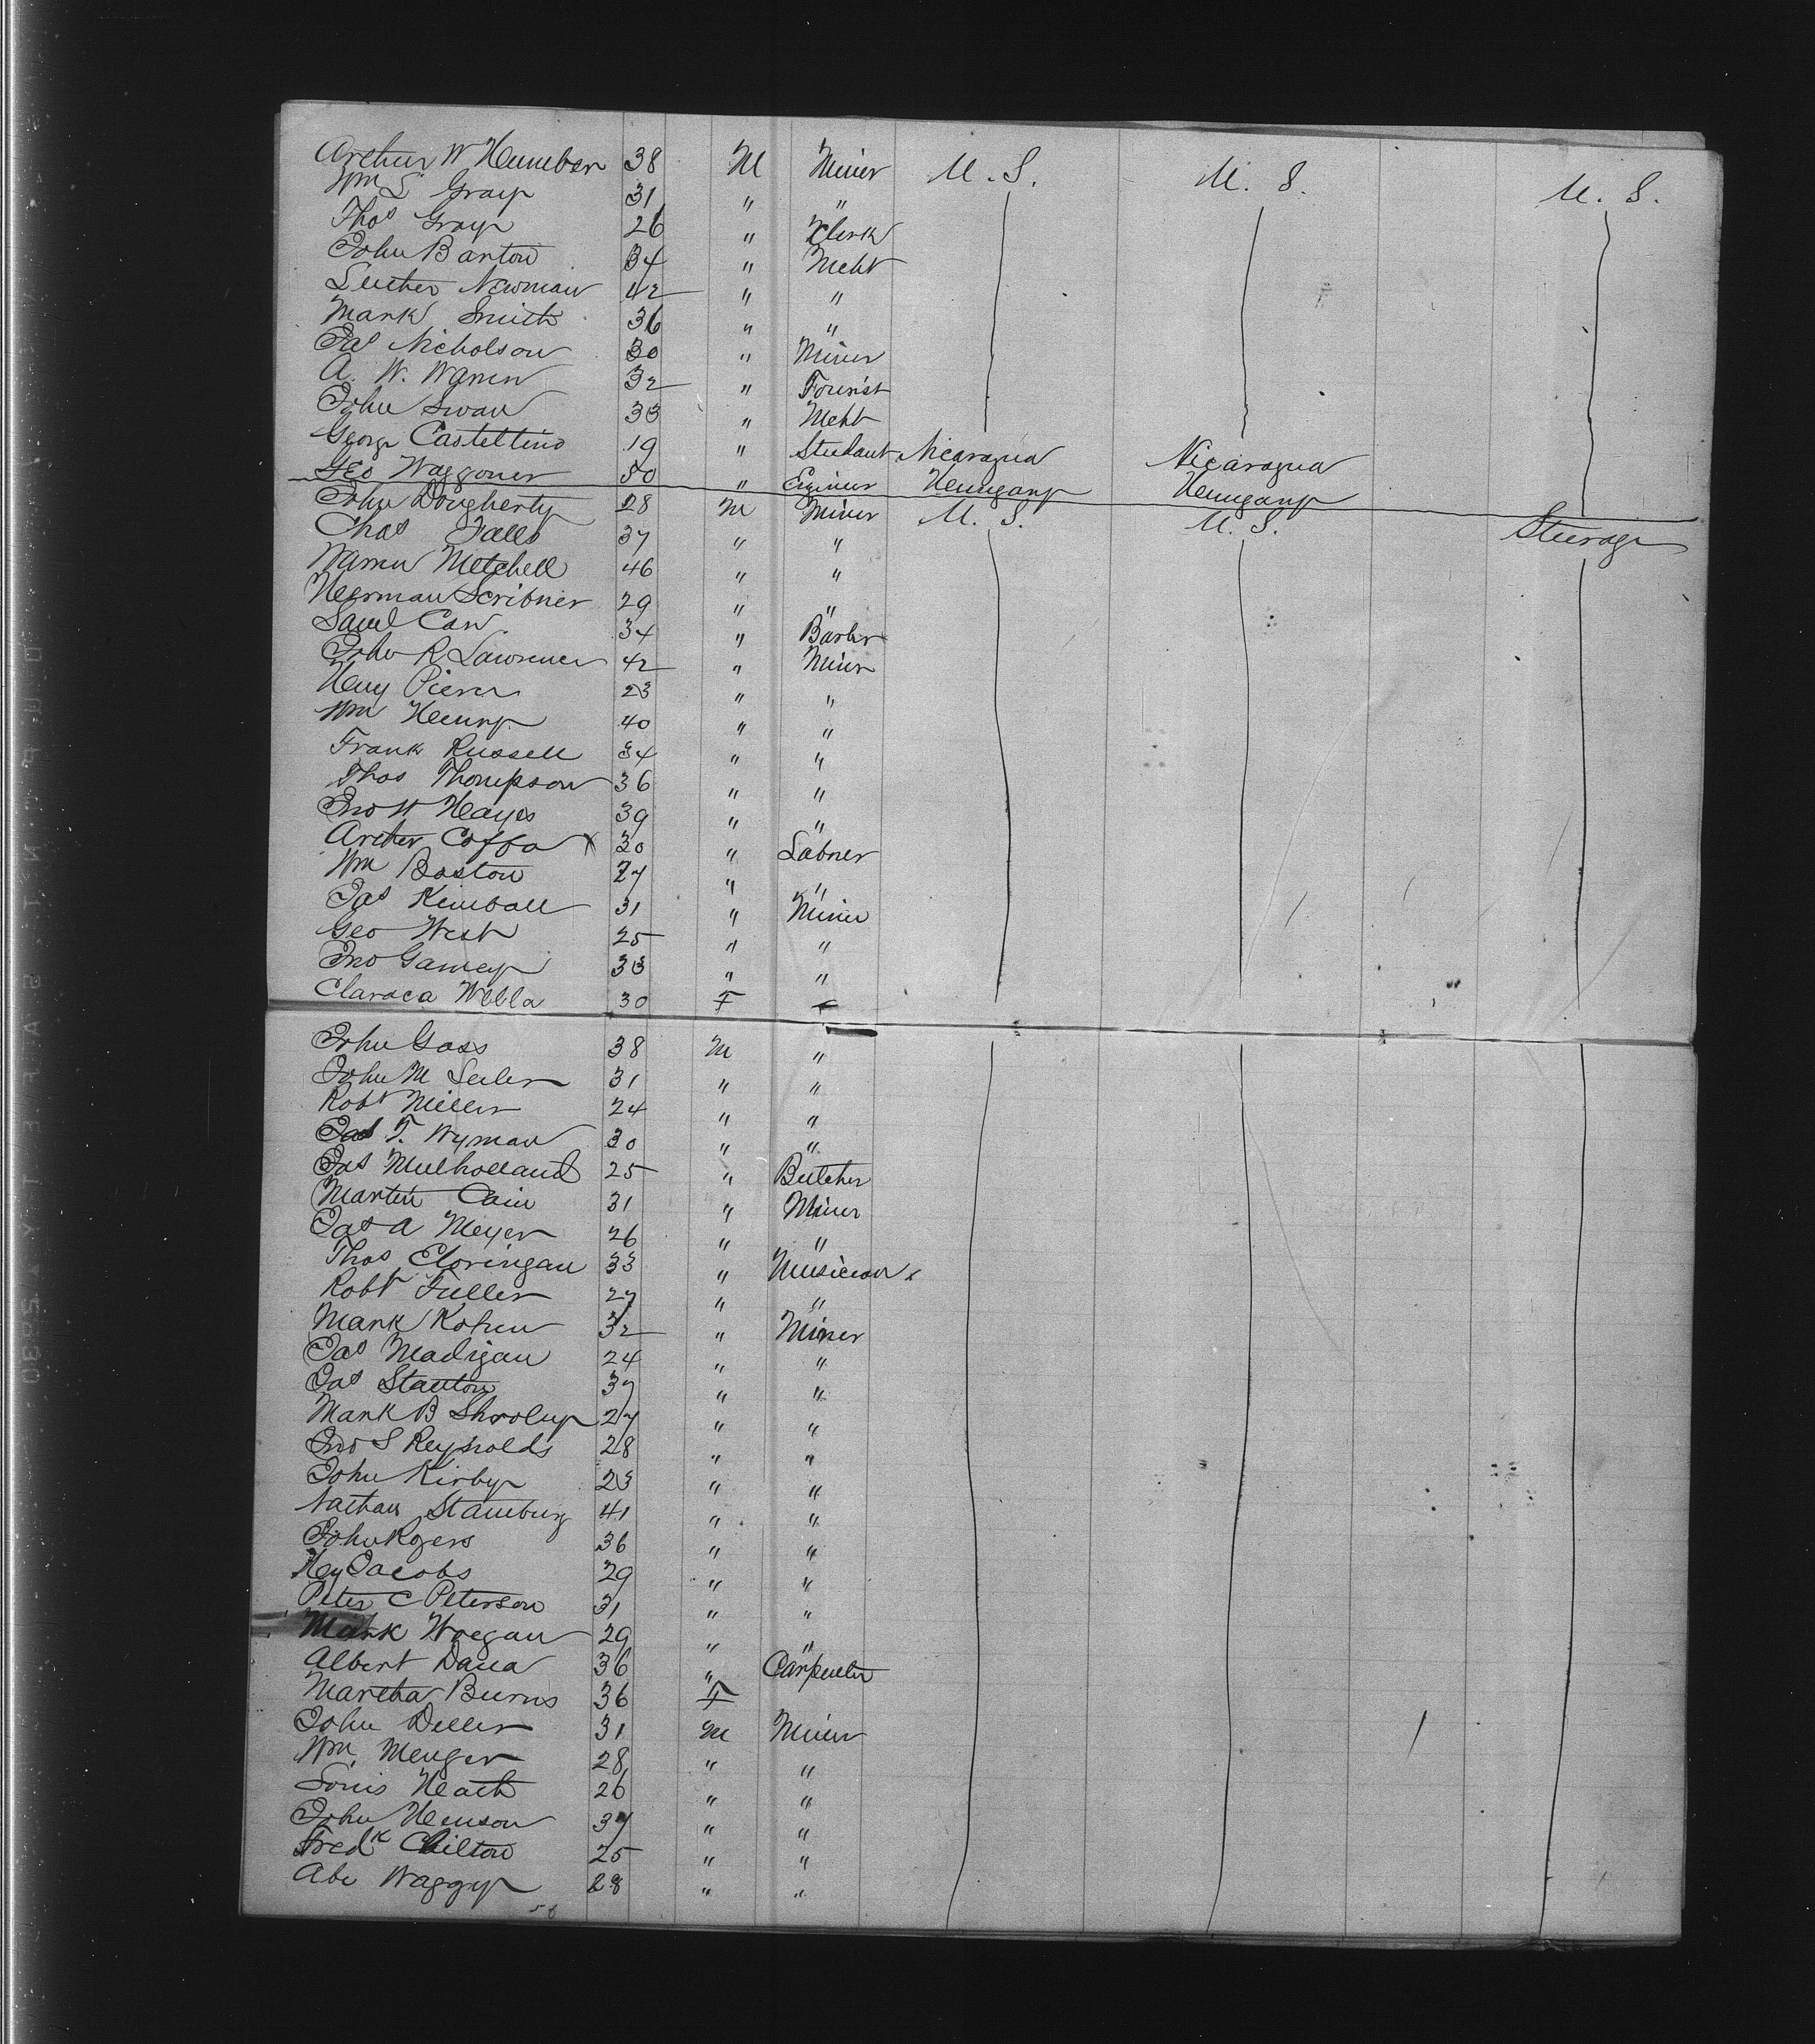 Arthur W Humber 38 M Miner U. S. U. S. U. S.
Wm S Gray 31 " "
Thos Gray 26 " Clerk
John Barton 34 " Mcht
Luther Newman 42 " "
Mark Smith 36 " "
Jas Nicholson 30 " Miner
A. W. Warren 32 " Tourist
John Swan 33 " Mcht
George Castellino 19 " Student Nicaragua Nicaragua
Geo Waggoner 50 " Enginer Hungary Hungary
John Dougherty 28 M Miner U. S. U. S. Steerage
Chas Falls 37 " "
Warren Metchell 46 " "
Herman Scribner 29 " "
Saml Carr 34 " Barber
John R Lawrence 42 " Miner
Heny Pierce 23 " "
Wm Henry 40 " "
Frank Russell 34 " "
Thos Thompson 36 " "
Jno W Hayes 39 " "
Arther Coffa x 30 " Labner
Wm Boston 27 " "
Jas Kimball 31 " Miner
Geo West 25 " "
Jno Garvey 33 " "
Claraca Webla 30 F
John Gass 38 M "
John M Seiler 31 " "
Robt Miller 24 " "
Jas T. Wyman 30 " "
Jas Mulholland 25 " Butcher
Martin Cain 31 " Miner
Jas A Meyer 26 " "
Thos Eloringan 33 " Musician
Robt Fuller 27 " "
Mark Kohen 32 " Miner
Jas Madigan 24 " "
Jas Stanton 37 " "
Mark B 27 " "
Jno S Reynolds 28 " "
John Kirby 23 " "
Nathan Stamburg 41 " "
John Rogers 36 " "
Hey Jacobs 29 " "
Peter C Peterson 31 " "
Mark Woegan 29 " "
Albert Dana 36 " Carpenter
Martha Burns 36 F
John Deller 31 M Miner
Wm Menger 28 " "
Louis Heath 26 " "
John Henson 37 " "
Fredk Chilton 25 " "
Abe Waggy 28 " "
56